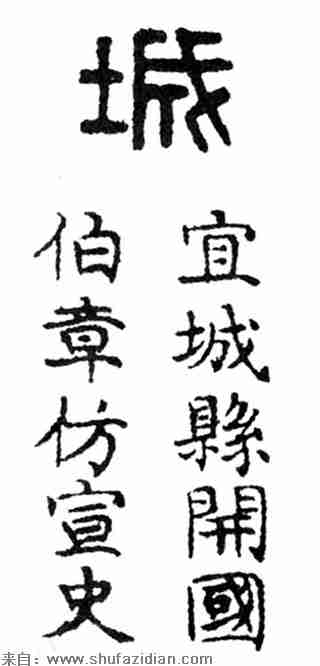 城
宜城縣開國
伯章仿宣史
来自：www.shufazidian.com